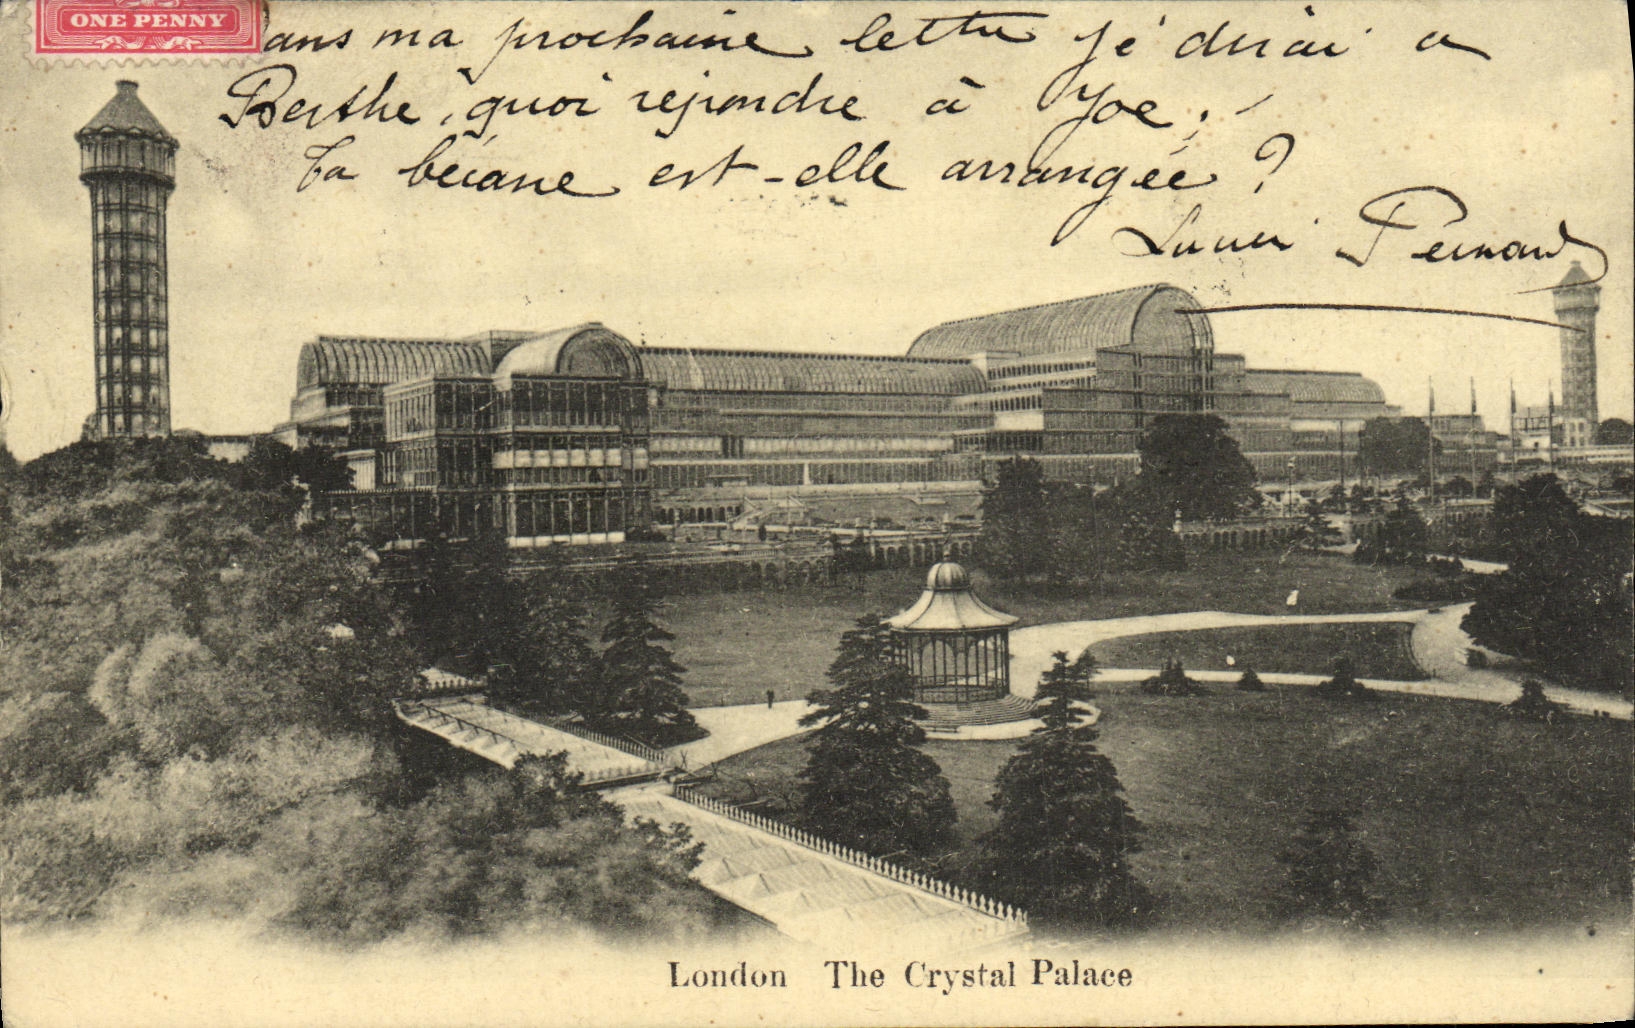 ONE PENNY
Dans ma prochaine lettre je dirai a
Berthe, quoi répondre à Joe.
Ta bécane est-elle arrangée ?
Pernard
London The Crystal Palace